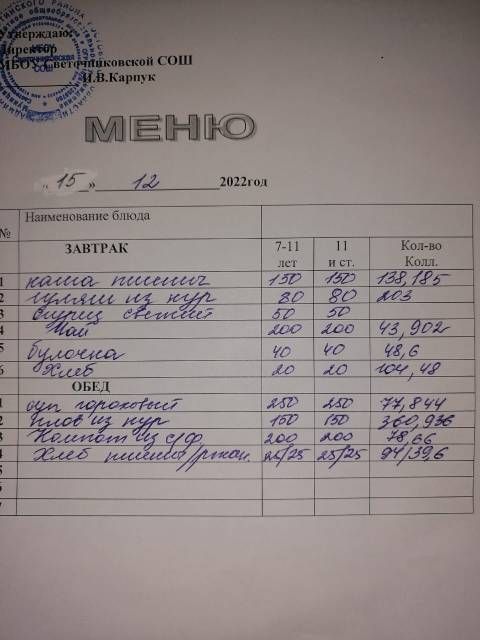 Утверждаю:
Директор
МБОУ Светочниковской СОШ
И.В.Карпук
МЕНЮ
« 15 » 12 2022год
№ Наименование блюда
ЗАВТРАК 7-11 лет 11 и ст. Кол-во Колл.
1 каша пшенич 150 150 138,185
2 гуляш из кур 80 80 203
3 огурец свежий 50 50
4 Чай 200 200 43,902
5 булочка 40 40 48,6
6 Хлеб 20 20 104,48
ОБЕД
1 суп гороховый 250 250 77,844
2 плов из кур 150 150 360,936
3 Компот из с/ф 200 200 78,66
4 Хлеб пшенич/ржан. 25/25 25/25 94/39,6
5
6
7